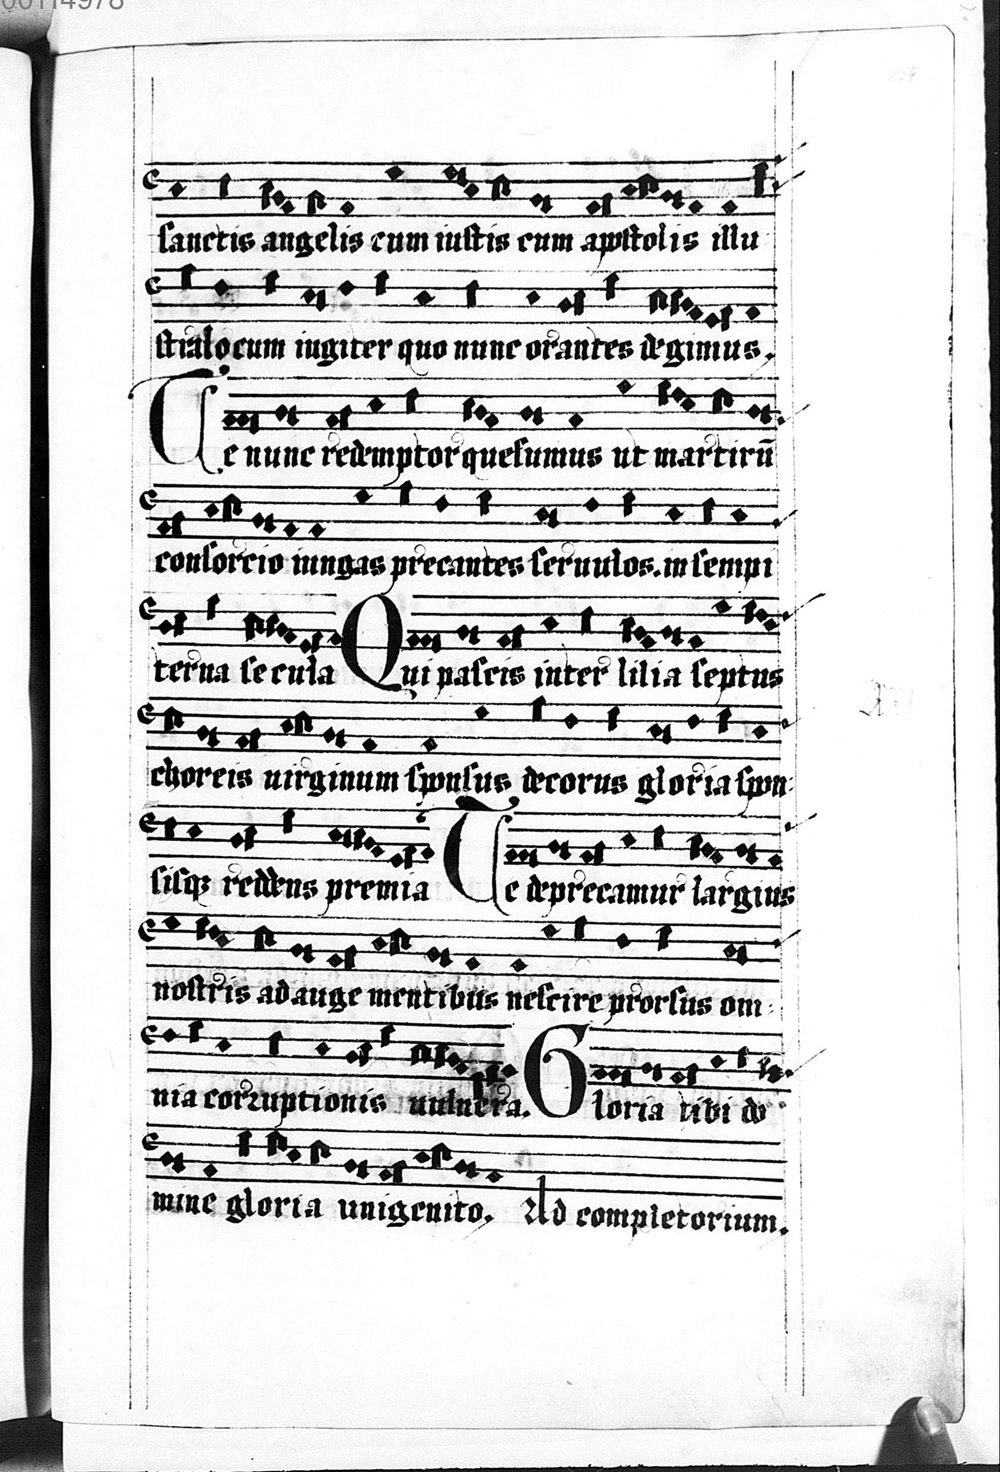 00114978
sanctis angelis cum iustis cum apostolis illu
stralocum iugiter quo nunc orantes degimus.
Te nunc redemptor quesumus ut martirū
consorcio iungas precantes seruulos. in sempi
terna secula Qui pascis inter lilia septus
choreis uirginum sponsus decorus gloria spon
sisqꝫ reddens premia Te deprecamur largius
nostris adauge mentibus nescire prorsus om
nia corruptionis uulnera. Gloria tibi do
mine gloria unigenito. Ad completorium.